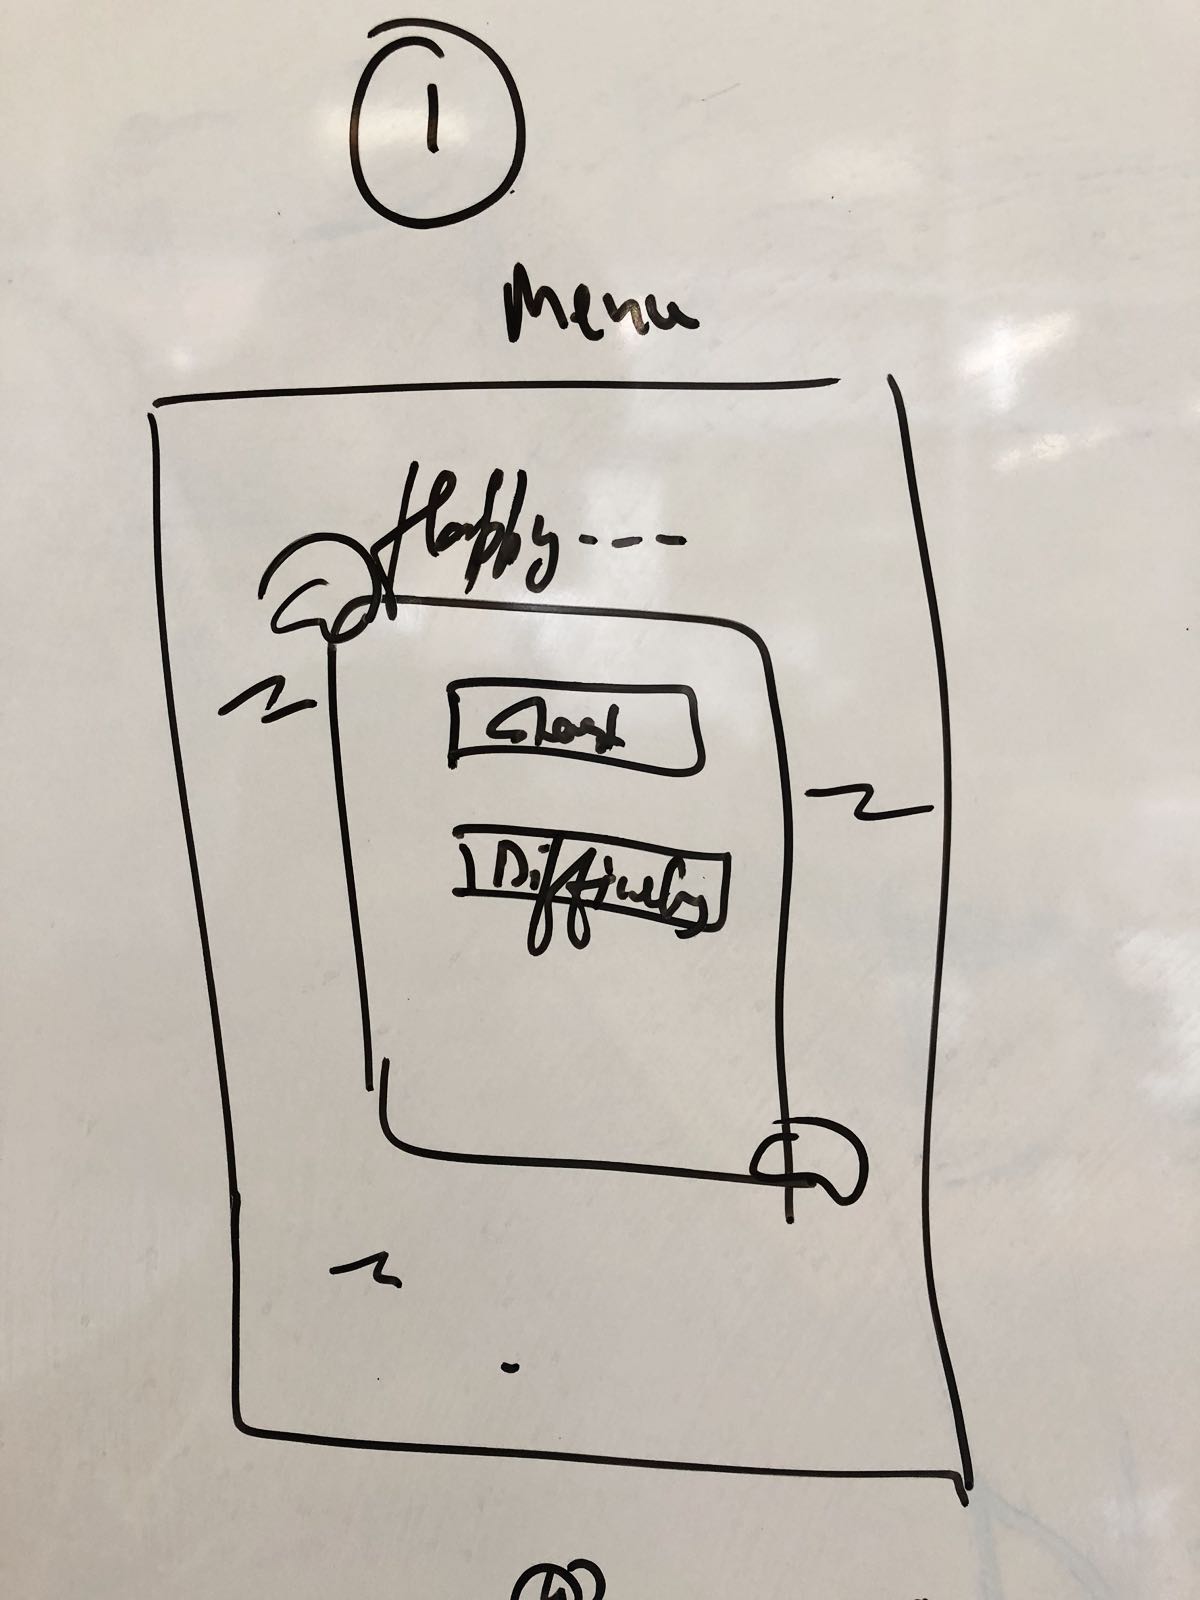 1
Menu
Happy ----
Start
Difficulty